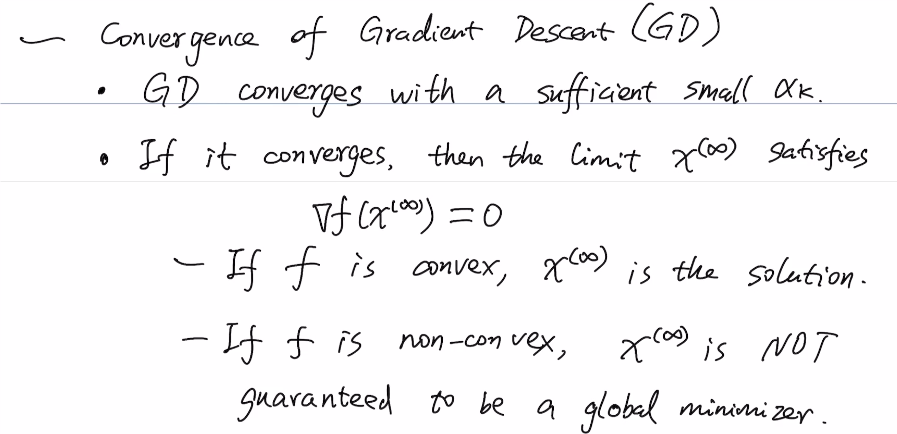 — Convergence of Gradient Descent (GD)
• GD converges with a sufficient small αₖ.
• If it converges, then the limit x^(∞) satisfies
∇f(x^(∞)) = 0
— If f is convex, x^(∞) is the solution.
— If f is non-convex, x^(∞) is NOT
guaranteed to be a global minimizer.